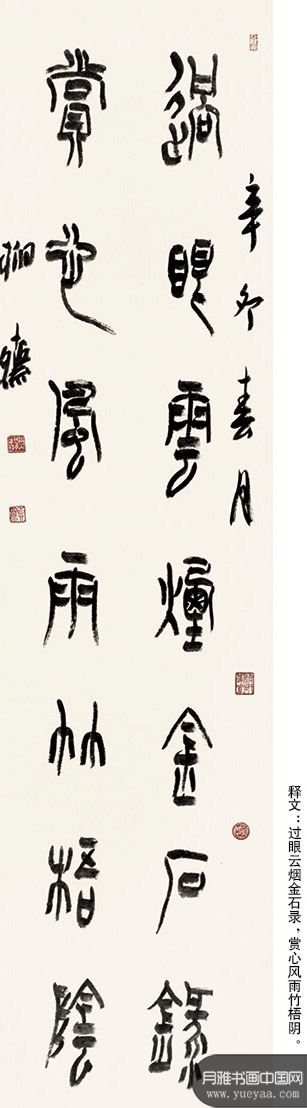 辛卯春月
過眼雲煙金石錄
賞心風雨竹梧陰
释文：过眼云烟金石录，赏心风雨竹梧阴。
月雅书画中国网
www.yueyaa.com